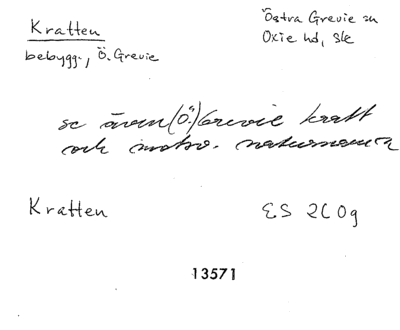 Kratten
Östra Grevie sn
Oxie hd, Sk
bebygg., Ö. Grevie
se även (Ö.) Grevie kratt
och motsv. naturnamn
Kratten
E.S 2C 0g
13571